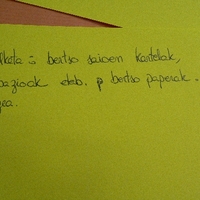 keta :: bertso saioen kartelak,
azioak etab. p bertso paperak.
ea.